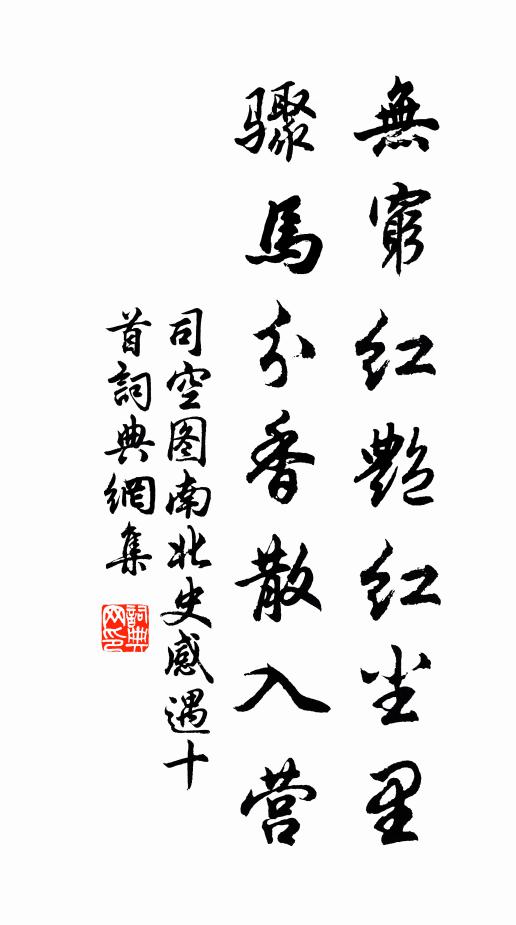 無窮红艷红尘里
驟馬分香散入营
司空图南北史感遇十
首詞典網集
詞典
网印